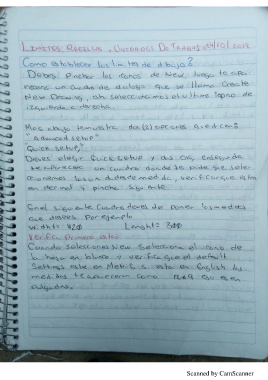 LIMITES, REGLAS, UNIDADES DE TRABAJO 24/10/2018
Como establecer los limites de dibujo?
Debes pinchar los iconos de New, luego te apa
recera un cuadro de dialogo que se llama Create
New Drawing, ahi seleccionamos el ultimo icono de
izquierda a derecha.
Mas abajo te muestra dos (2) opciones que dicen
"advanced setup"
Quick setup"
Debes elegir Quick setup y das ok, enseguida
te aparece un cuadro donde te pide que selec
ciones la unidad de medida, verifica que este
en decimal y pincha siguiente
En el siguiente cuadro debes de poner las medidas
que desees Por ejemplo
Width: 420 Lenght: 300
Verifica Primero esto:
Cuando selecciones New selecciona el icono de
la hoja en blanco y verifica que el default
Settings este en Metric si esta en English las
medidas te apareceran como 12x9 eso es en
pulgadas.
Scanned by CamScanner